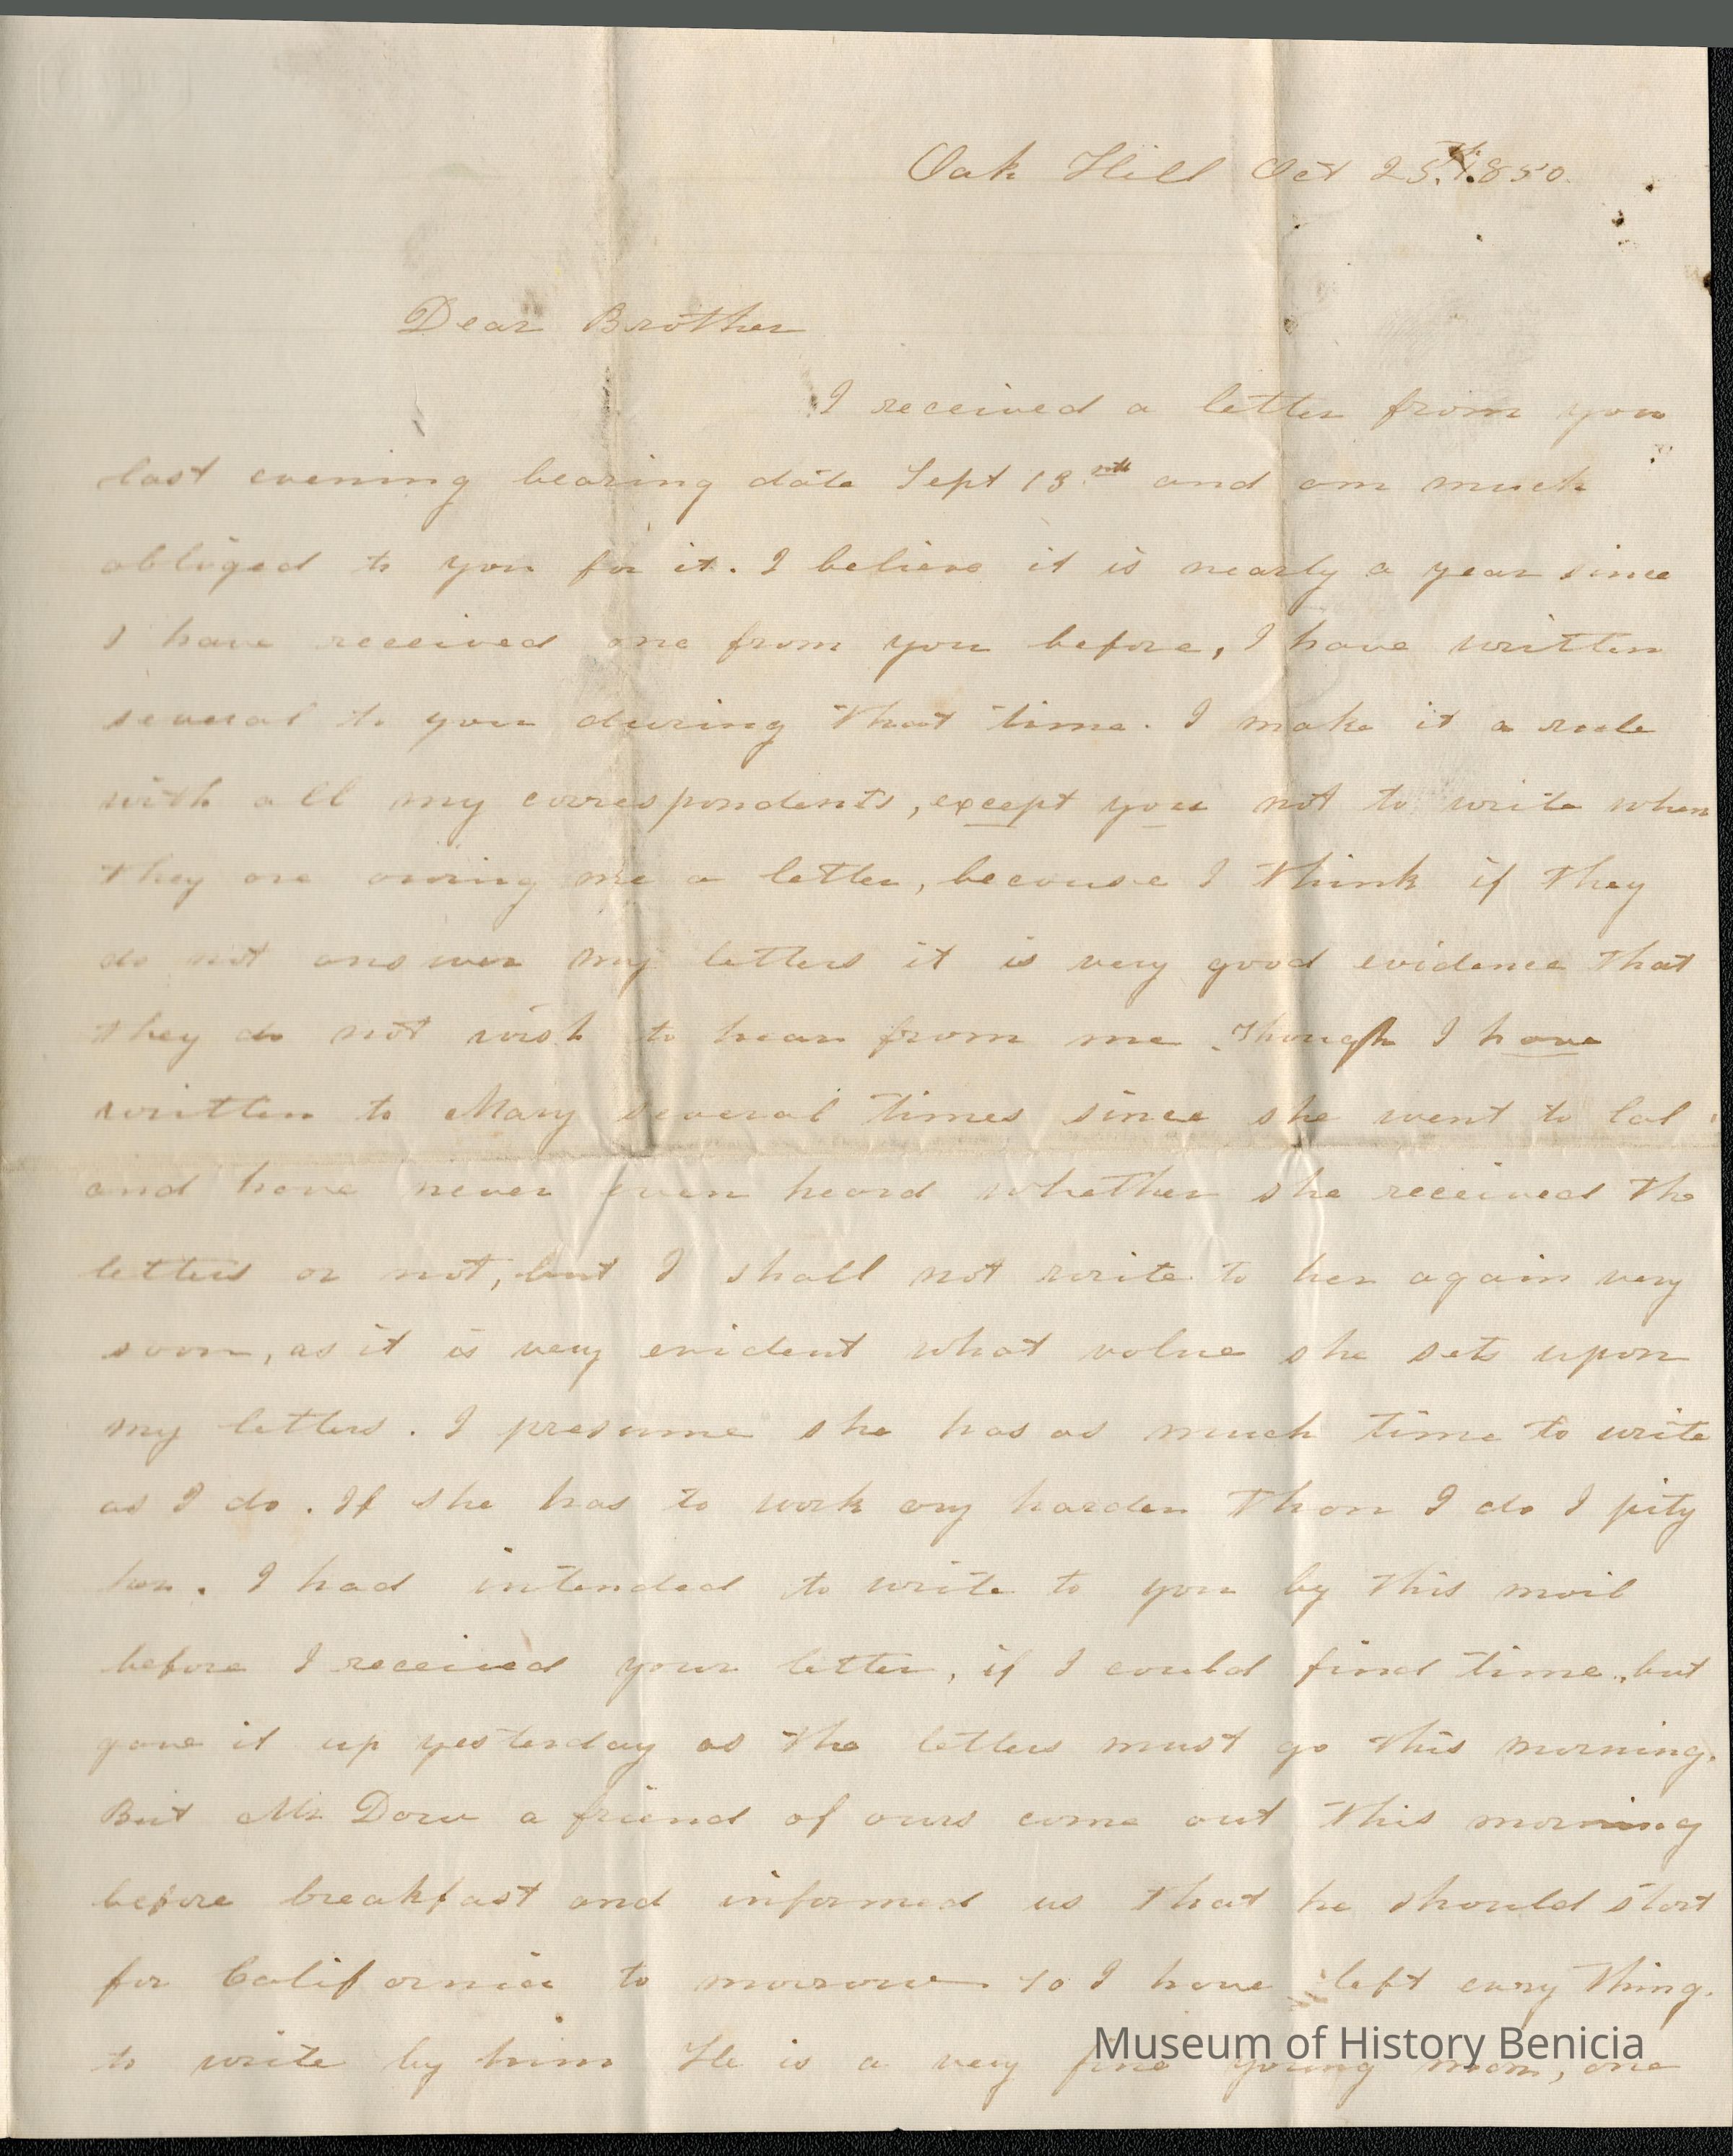 Oak Hill Oct 25th. 1850.
Dear Brother
I received a letter from you
last evening bearing date Sept 13th and am much
obliged to you for it. I believe it is nearly a year since
I have received one from you before, I have written
several to you during that time. I make it a rule
with all my correspondents, except you not to write when
they are owing me a letter, because I think if they
do not answer my letters it is very good evidence that
they do not wish to hear from me. Though I have
written to Mary several times since she went to Cal
and have never even heard whether she received the
letters or not, but I shall not write to her again very
soon, as it is very evident what value she sets upon
my letters. I presume she has as much time to write
as I do. If she has to work any harder than I do I pity
her. I had intended to write to you by this mail
before I received your letter, if I could find time, but
gave it up yesterday as the letters must go this morning.
But Mr Dow a friend of ours came out this morning
before breakfast and informed us that he should start
for California to morrow so I have left every thing.
to write by him He is a very fine young man, one
Museum of History Benicia